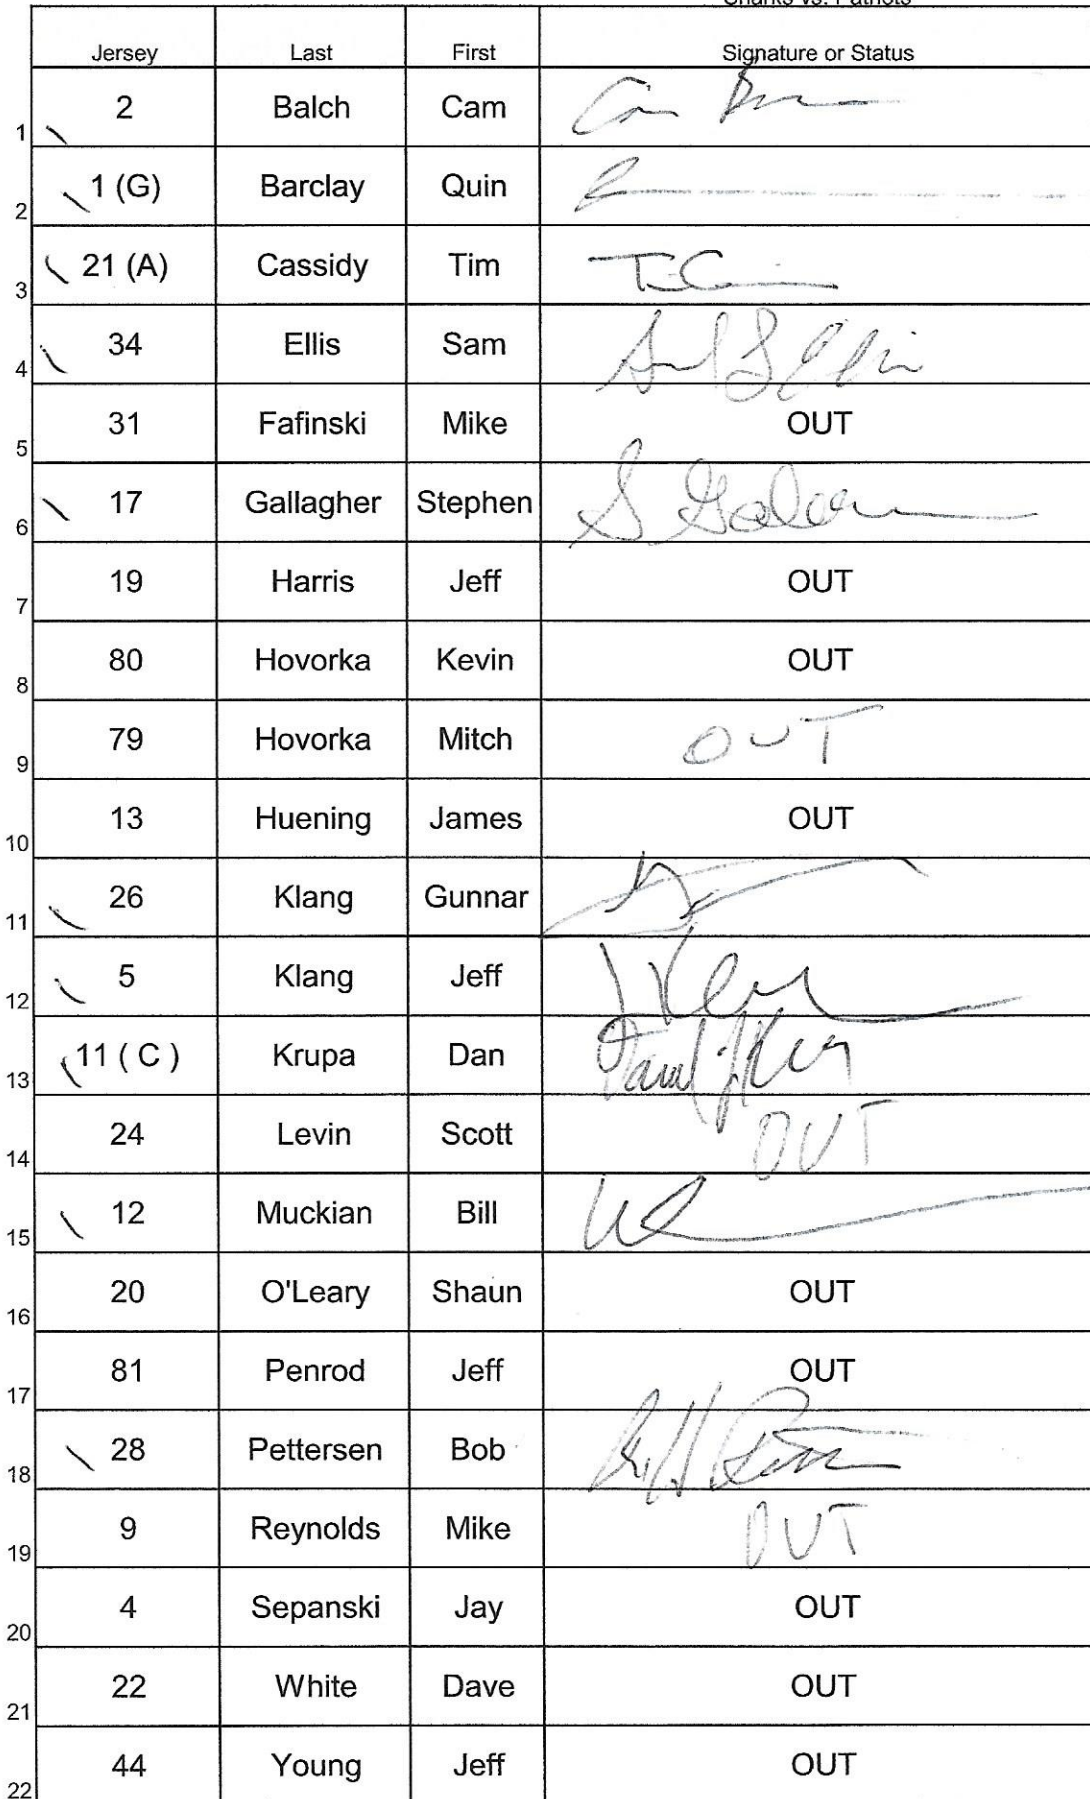 Sharks vs. Patriots
Jersey Last First Signature or Status
1 2 Balch Cam
2 1 (G) Barclay Quin
3 21 (A) Cassidy Tim
4 34 Ellis Sam
5 31 Fafinski Mike OUT
6 17 Gallagher Stephen
7 19 Harris Jeff OUT
8 80 Hovorka Kevin OUT
9 79 Hovorka Mitch OUT
10 13 Huening James OUT
11 26 Klang Gunnar
12 5 Klang Jeff
13 11 ( C ) Krupa Dan
14 24 Levin Scott OUT
15 12 Muckian Bill
16 20 O'Leary Shaun OUT
17 81 Penrod Jeff OUT
18 28 Pettersen Bob
19 9 Reynolds Mike OUT
20 4 Sepanski Jay OUT
21 22 White Dave OUT
22 44 Young Jeff OUT